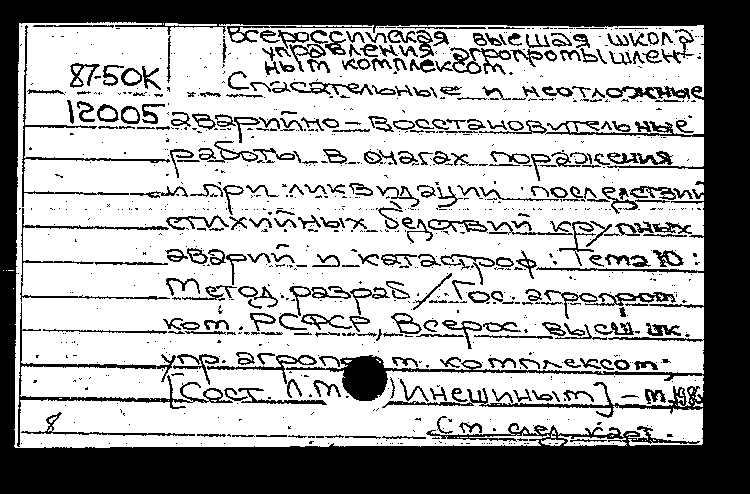 Всероссийская высшая школа
управления агропромышлен-
ным комплексом.
87-50К
Спасательные и неотложные
12005
аварийно-восстановительные
работы в очагах поражения
и при ликвидации последствий
стихийных бедствий крупных
аварий и катастроф: Тема 10:
Метод. разраб. / Гос. агропром.
ком. РСФСР, Всерос. высш. шк.
упр. агропром. комплексом;
[Сост. Л.М. Инешиным] – М.,
8
См. след. карт.